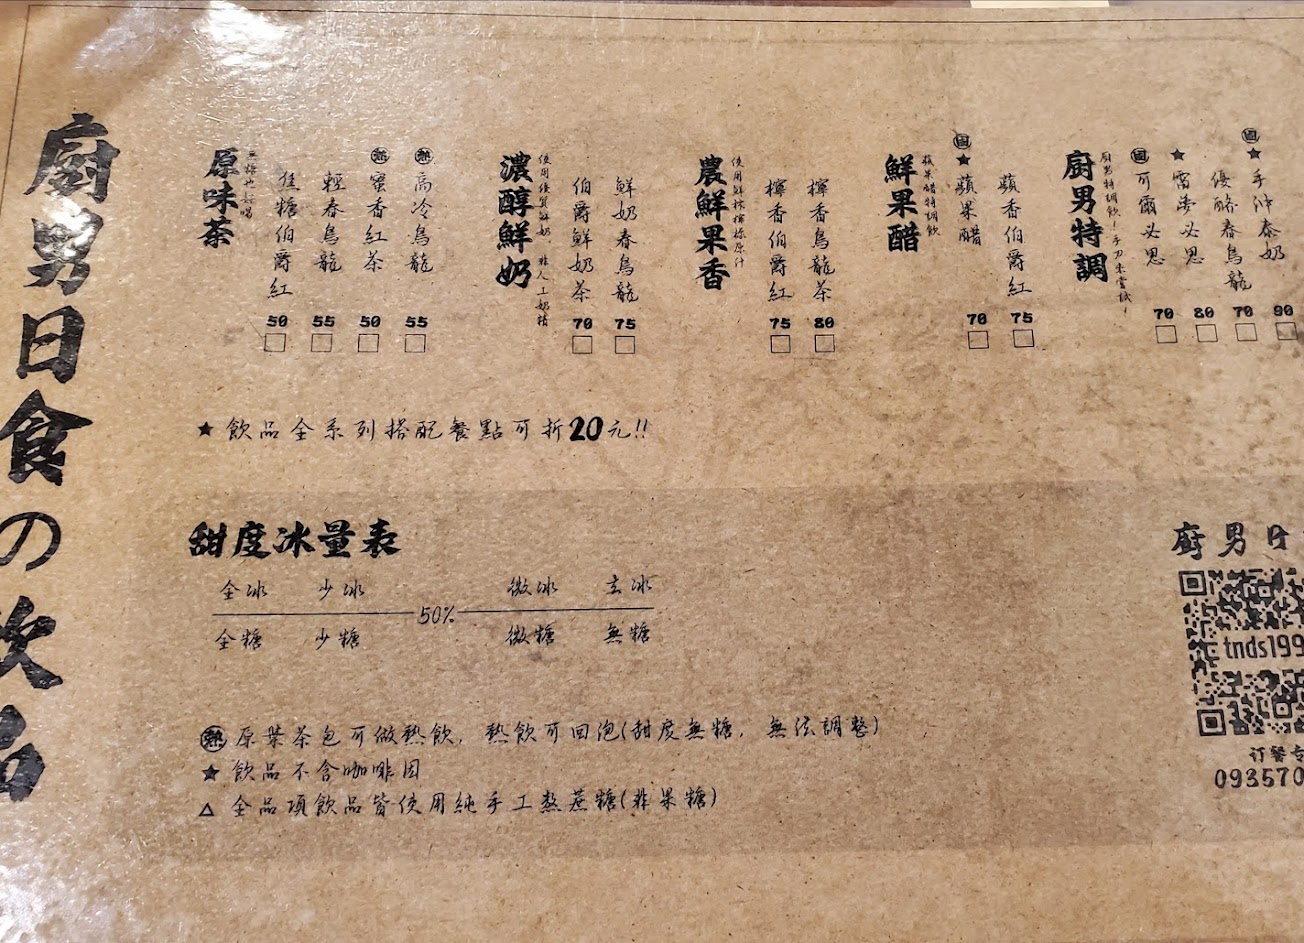 廚男日食の飲品
原味茶
無糖也好喝
佳糖伯爵紅 50
輕春烏龍 55
熱 蜜香紅茶 50
熱 高冷烏龍 55
濃醇鮮奶
使用優質鮮奶，非人工奶精
伯爵鮮奶茶 70
鮮奶春烏龍 75
農鮮果香
使用鮮榨檸檬原汁
檸香伯爵紅 75
檸香烏龍茶 80
鮮果醋
蘋果醋特調飲
固 ★ 蘋果醋 70
蘋香伯爵紅 75
廚男特調
廚男特調飲！手刀來嘗試！
固 可爾必思 70
★ 雪夢必思 80
優酪春烏龍 70
固 ★ 手沖泰奶 90
★ 飲品全系列搭配餐點可折20元!!
甜度冰量表
全冰 少冰 微冰 去冰
50%
全糖 少糖 微糖 無糖
熱 原葉茶包可做熱飲，熱飲可回泡(甜度無糖，無法調整)
★ 飲品不含咖啡因
△ 全品項飲品皆使用純手工熬蔗糖(非果糖)
廚男日
tnds199
订餐专
093570